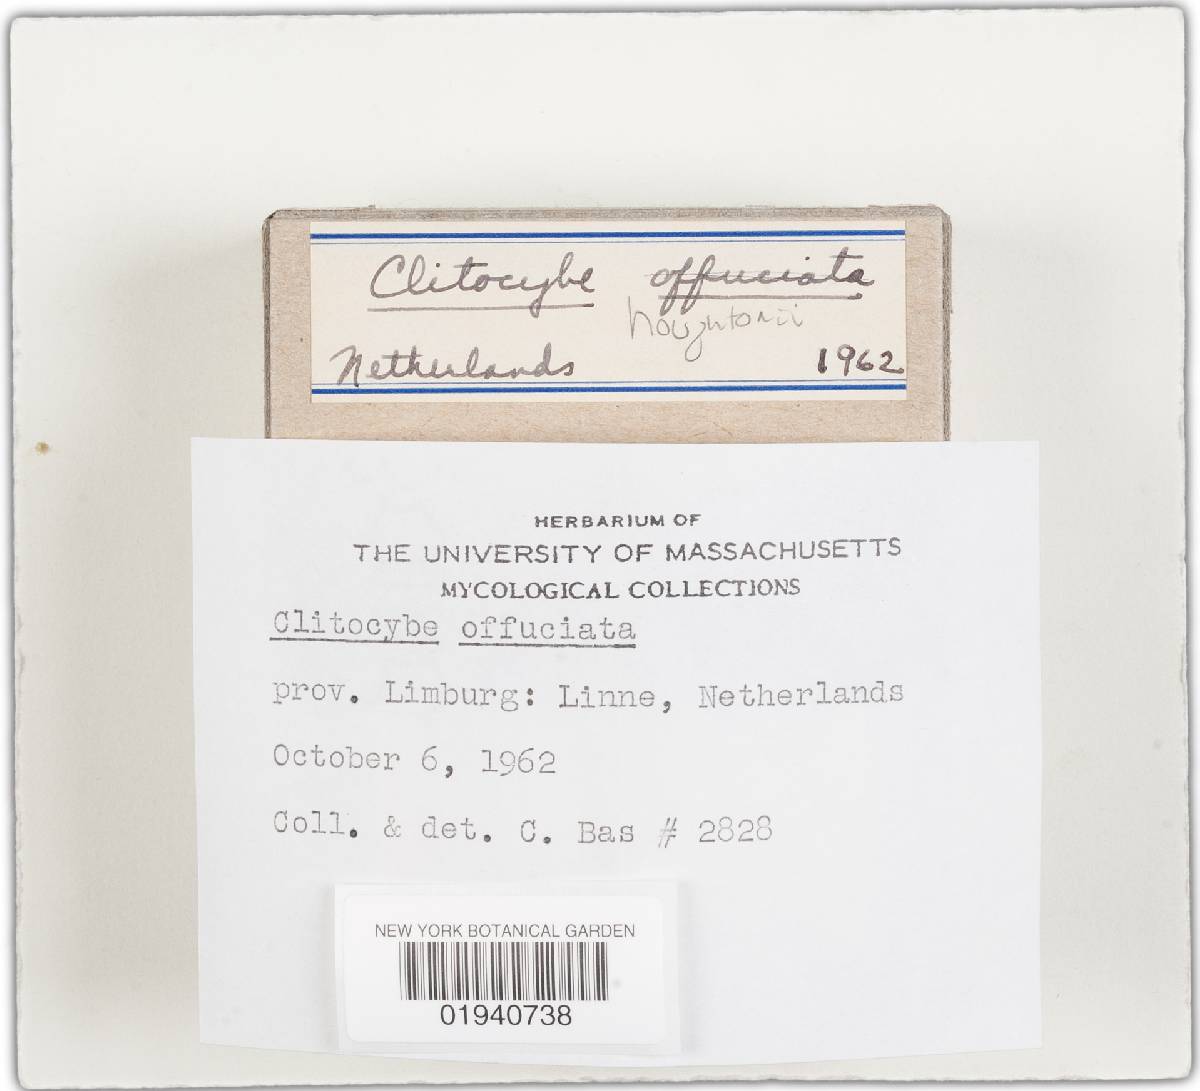 Clitocybe offuciata
houghtonii
Netherlands 1962
HERBARIUM OF
THE UNIVERSITY OF MASSACHUSETTS
MYCOLOGICAL COLLECTIONS
Clitocybe offuciata
prov. Limburg: Linne, Netherlands
October 6, 1962
Coll. & det. C. Bas # 2828
NEW YORK BOTANICAL GARDEN
01940738